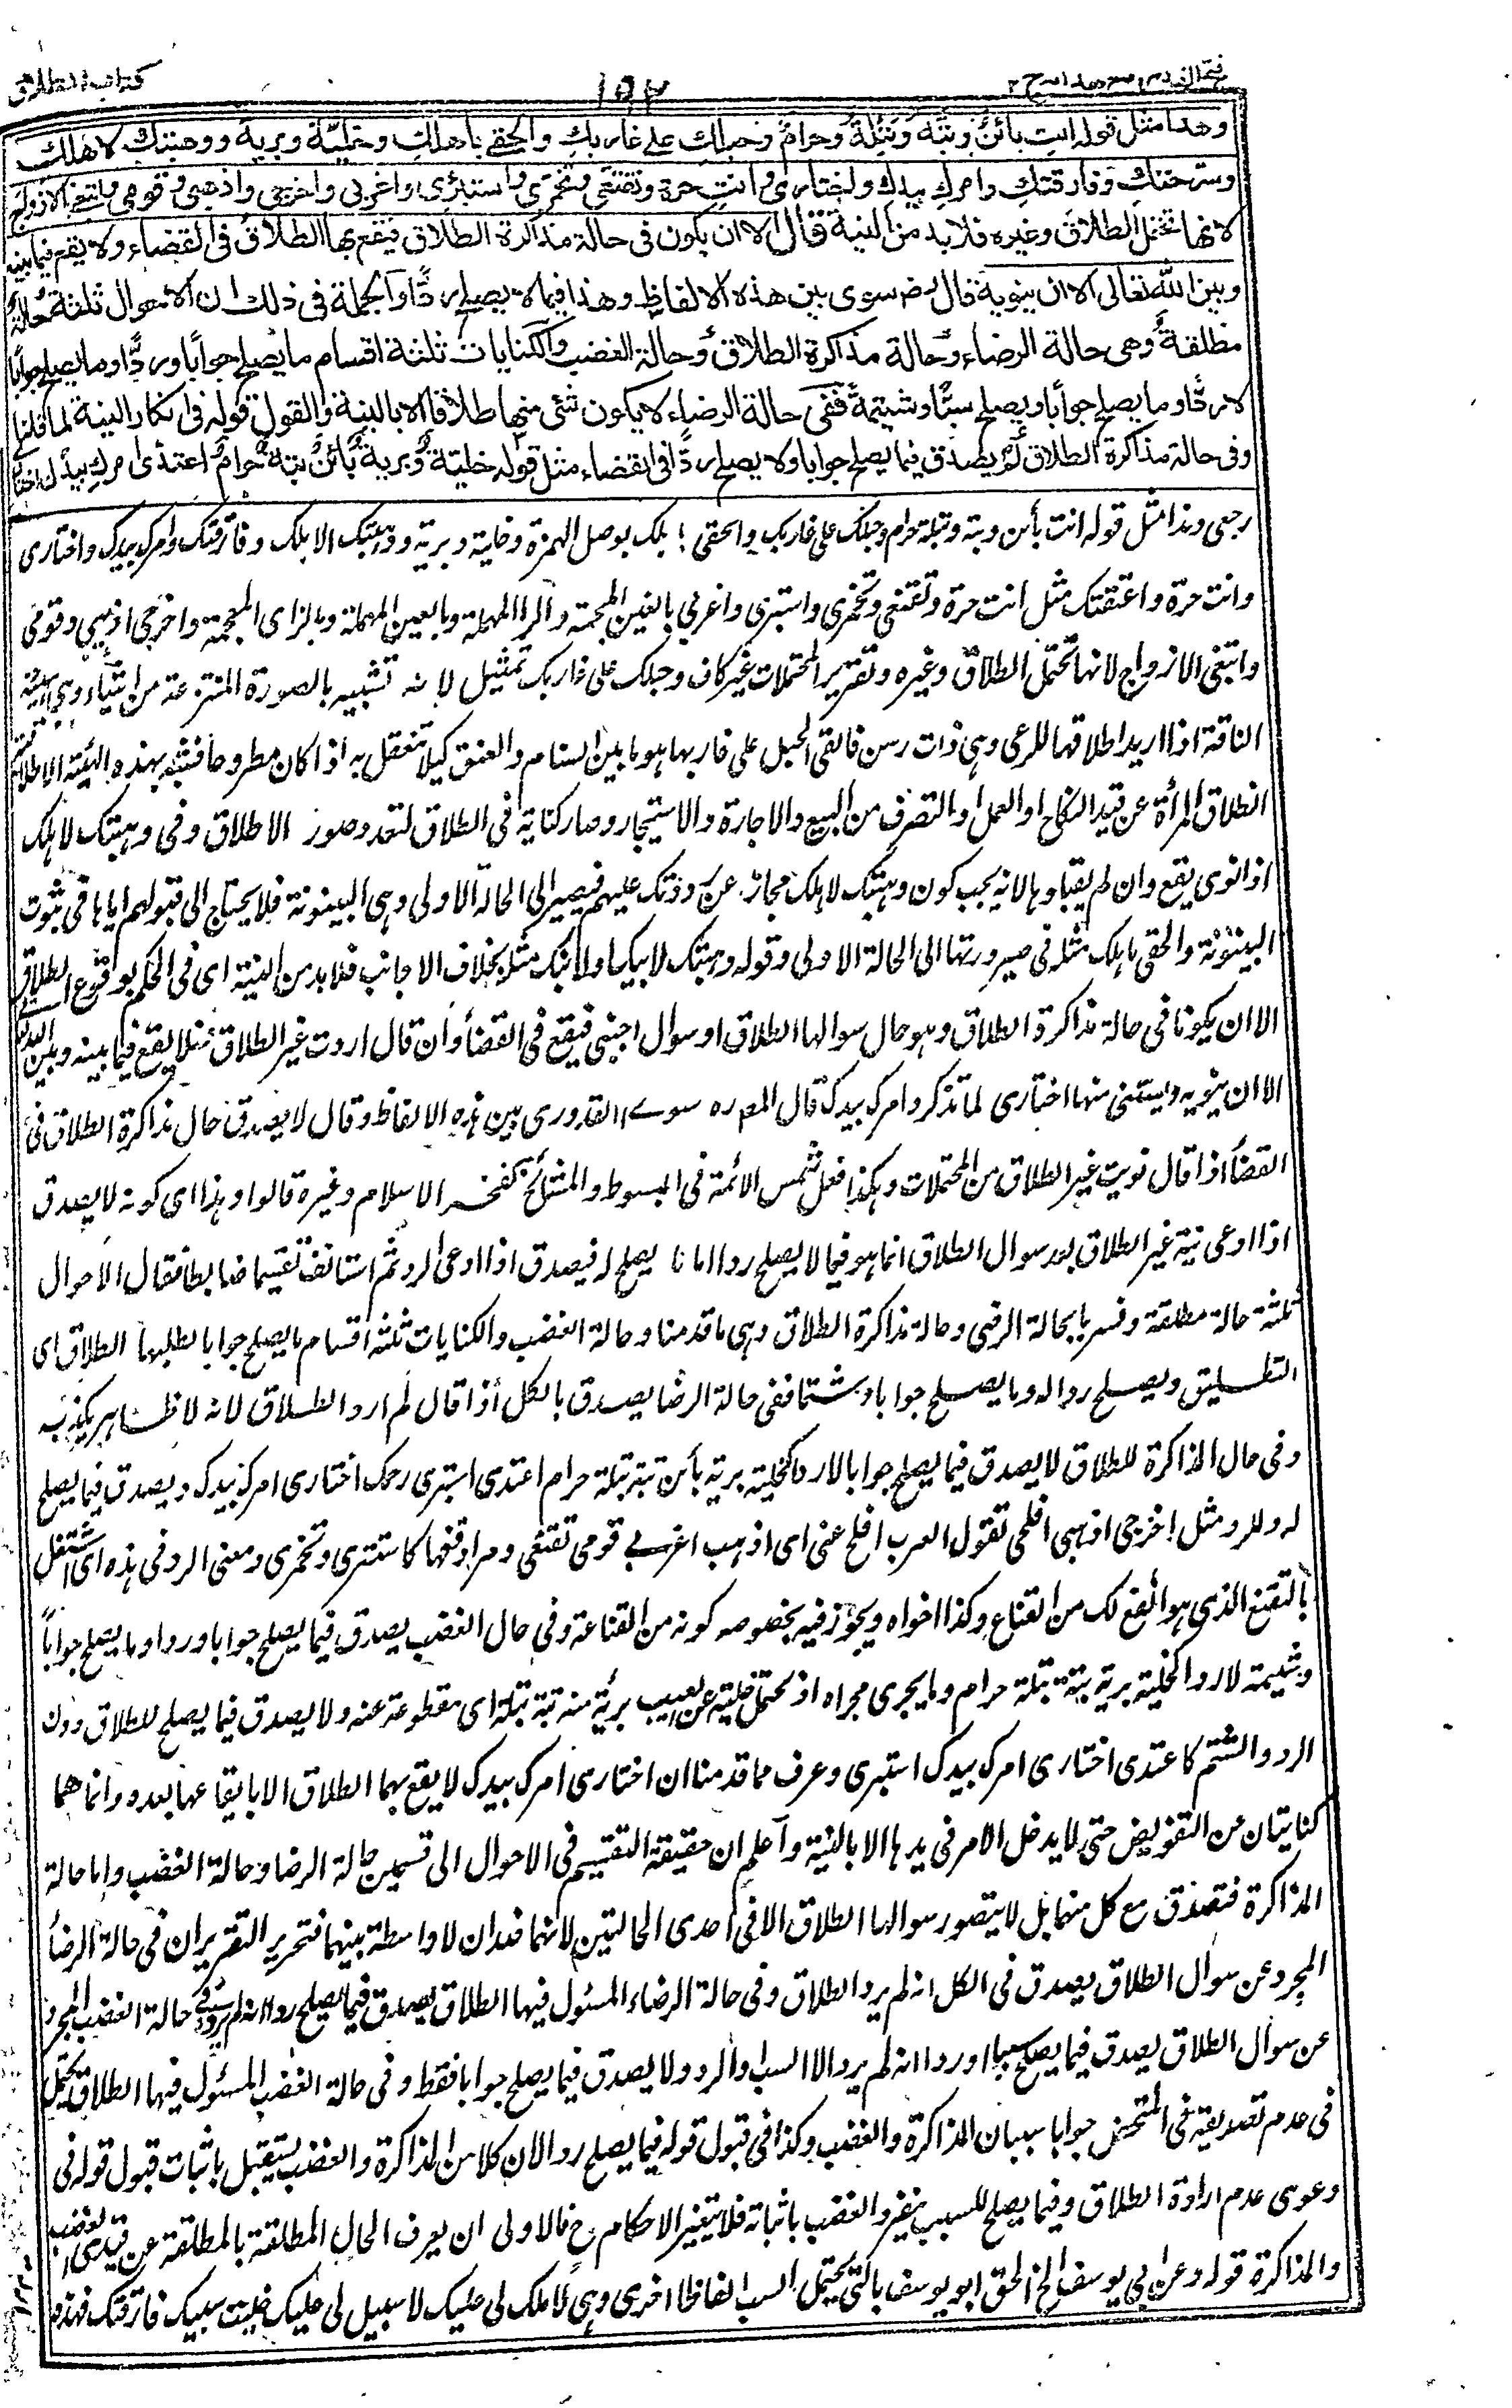 كتاب الطلاق
١٥٢
وهذا مثل قوله انت بائن وبتة وبتلة وحرام وحبلك على غاربك والحقى باهلك وخلية وبرية ووهبتك لاهلك
وسرحتك وفارقتك وامرك بيدك واختارى وانت حرة وتقنعى وتخمرى واستترى واغربى واخرجى واذهبى وقومى وابتغى الازواج
لانها تحتمل الطلاق وغيره فلا بد من النية قال الا ان يكون فى حالة مذاكرة الطلاق فيقع بها الطلاق فى القضاء ولا يقع فيما بينه
وبين الله تعالى الا ان ينويه قال رضـ سوى بين هذه الالفاظ وهذا فيما لا يصلح ردًّا والجملة فى ذلك ان الاحوال ثلثة حالة
مطلقة وهى حالة الرضاء وحالة مذاكرة الطلاق وحالة الغضب والكنايات ثلثة اقسام ما يصلح جوابا وردًّا وما يصلح جوابا
لا ردًّا وما يصلح جوابا ويصلح سبًّا وشتيمة ففى حالة الرضاء لا يكون شئ منها طلاقا الا بالنية والقول قوله فى انكار النية لما قلنا
وفى حالة مذاكرة الطلاق لم يصدق فيما يصلح جوابا ولا يصلح ردًّا فى القضاء مثل قوله خلية وبرية بائن بتة حرام اعتدى امرك بيدك اختارى
رجعى وهذا مثل قوله انت بائن وبتة وبتلة حرام وحبلك على غاربك والحقى باهلك بوصل الهمزة وخلية وبرية ووهبتك لاهلك وفارقتك وامرك بيدك واختارى
وانت حرة واعتقتك مثل انت حرة وتقنعى وتخمرى واستبرئى واغربى بالغين المعجمة والراء المهملة وبالعين المهملة وبالزاى المعجمة واخرجى اذهبى وقومى
وابتغى الازواج لانها تحتمل الطلاق وغيره وتقرير المحتملات غير كاف وحبلك على غاربك تمثيل لانه تشبيه بالصورة المنتزعة من اشياء وهى هيئة
الناقة اذا اريد اطلاقها للرعى وهى ذات رسن فالقى الحبل على غاربها هو ما بين السنام والعنق كيلا تتعقل به اذا كان مطروحا فشبه بهذه الهيئة الاطلاقية
انطلاق المرأة عن قيد النكاح او العمل والتصرف من البيع والاجارة والاستيجار وصار كناية فى الطلاق لتعدد صور الاطلاق وفى وهبتك لاهلك
اذا نوى يقع وان لم يقبلوها لانه يجب كون وهبتك لاهلك مجازا عن رددتك عليهم فيصير الى الحالة الاولى وهى البينونة فلا يحتاج الى قبولهم اياها فى ثبوت
البينونة والحقى باهلك مثله فى صيرورتها الى الحالة الاولى وقوله وهبتك لابيك او لابنك مثله بخلاف الاجانب فلا بد من النية اى فى الحكم بوقوع الطلاق
الا ان يكونا فى حالة مذاكرة الطلاق وهو حال سوالها الطلاق او سوال اجنبى فيقع فى القضاء وان قال اردت غير الطلاق فلا يقع فيما بينه وبين الله
الا ان ينويه ويستثنى منها اختارى لما تذكر وامرك بيدك قال المصـ ره سوى القدورى بين هذه الالفاظ وقال لا يصدق حال مذاكرة الطلاق فى
القضاء اذا قال نويت غير الطلاق من المحتملات وهكذا فعل شمس الائمة فى المبسوط والمشائخ كفخر الاسلام وغيره قالوا وهذا اى كونه لا يصدق
اذا ادعى نية غير الطلاق بعد سوال الطلاق انما هو فيما لا يصلح ردا اما ما يصلح له فيصدق اذا ادعى الرد ثم استانف تقسيما ضابطا فقال الاحوال
ثلثة حالة مطلقة وفسرها بحالة الرضى وحالة مذاكرة الطلاق وهى ما قدمنا وحالة الغضب والكنايات ثلثة اقسام ما يصلح جوابا لطلبها الطلاق اى
التطليق ويصلح ردا له وما يصلح جوابا وشتما ففى حالة الرضا يصدق بالكل اذا قال لم ارد الطلاق لانه لا ظاهر يكذبه
وفى حال المذاكرة للطلاق لا يصدق فيما يصلح جوابا لا ردا كخلية برية بائن بتة بتلة حرام اعتدى استبرى رحمك اختارى امرك بيدك ويصدق فيما يصلح
له وللرد مثل اخرجى اذهبى افلحى تقول العرب افلح عنى اى اذهب اغربى قومى تقنعى ومرادفها كاستترى وتخمرى ومعنى الرد فى هذه اى اشتغلى
بالتقنع الذى هو انفع لك من القناع وكذا اخواه ويجوز فيه بخصوصه كونه من القناعة وفى حال الغضب يصدق فيما يصلح جوابا وردا وما يصلح جوابا
وشتيمة لا ردا كخلية برية بتة بتلة حرام وما يجرى مجراه اذ يحتمل خلية عن الحبيب برئية منه بتة بتلة اى مقطوعة عنه ولا يصدق فيما يصلح للطلاق دون
الرد والشتم كاعتدى اختارى امرك بيدك استبرى وعرف مما قدمنا ان اختارى امرك بيدك لا يقع بهما الطلاق الا بايقاعها بعده وانما هما
كنايتان عن التفويض حتى لا يدخل الامر فى يدها الا بالنية واعلم ان حقيقة التقسيم فى الاحوال الى قسمين حالة الرضا وحالة الغضب واما حالة
المذاكرة فتصدق مع كل منهما بل لا يتصور سوالها الطلاق الا فى احدى الحالتين لانهما ضدان لا واسطة بينهما فتحرير التقرير ان فى حالة الرضا
المجرد عن سوال الطلاق يصدق فى الكل انه لم يرد الطلاق وفى حالة الرضاء المسئول فيها الطلاق يصدق فيما يصلح ردا انه لم يرده وفى حالة الغضب المجرد
عن سوال الطلاق يصدق فيما يصلح سبا او ردا انه لم يرد الا السب والرد ولا يصدق فيما يصلح جوابا فقط وفى حالة الغضب المسئول فيها الطلاق يجتمع
فى عدم تصديقه فى المتمحض جوابا سببان المذاكرة والغضب وكذا فى قبول قوله فيما يصلح ردا لان كلا من المذاكرة والغضب يستقل باثبات قبول قوله فى
دعوى عدم ارادة الطلاق وفيما يصلح للسبب ينفرد الغضب باثباته فلا تتغير الاحكام ح فالاولى ان يعرف الحال المطلقة بالمطلقة عن قيدى الغضب
والمذاكرة قوله وعن ابى يوسف الخ الحق ابو يوسف بالتى يحتمل السب الفاظا اخرى وهى لا ملك لى عليك لا سبيل لى عليك خليت سبيلك فارقتك فهذه